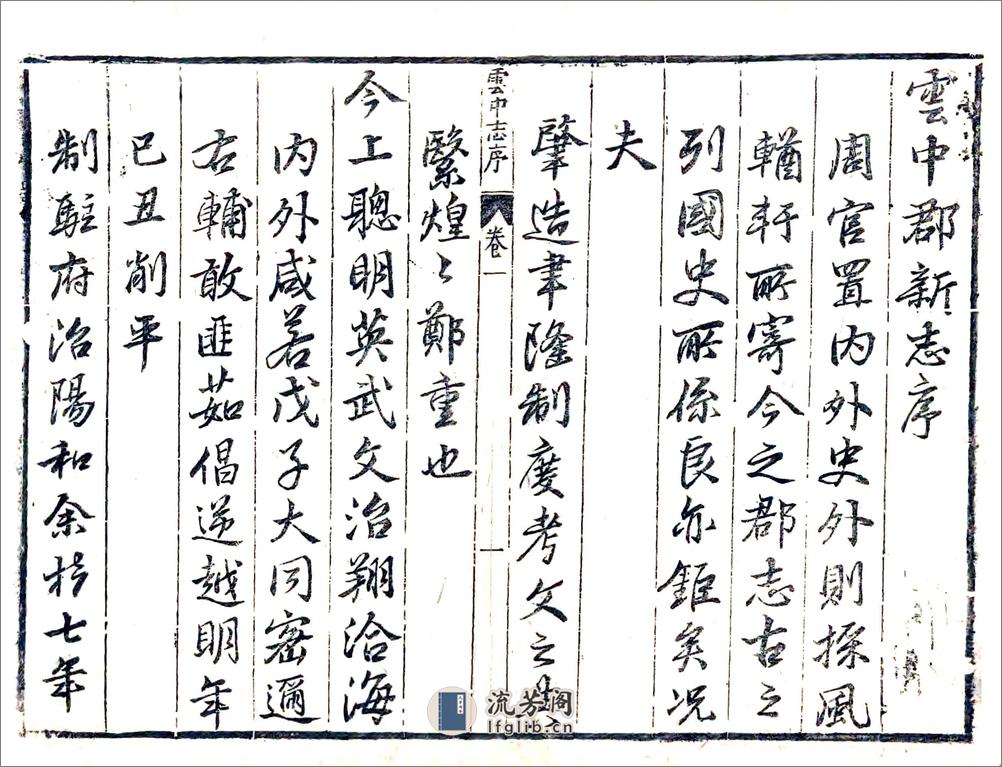 雲中郡新志序
周官置内外史外則採風
輶軒所寄今之郡志古之
列國史所係良亦鉅矣况
夫
肇造聿隆制度考文之
雲中志序 卷一 一
繄煌〻鄭重也
今上聰明英武文治翔洽海
内外咸若戊子大同密邇
右輔敢匪茹倡逆越明年
巳丑削平
制駐府治陽和余於七年
流芳阁
lfglib.cn